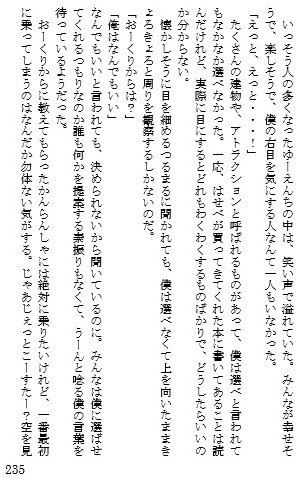 いっそう人の多くなったゆーえんちの中は、笑い声で溢れていた。みんなが幸せそ
うで、楽しそうで、僕の右目を気にする人なんて一人もいなかった。
「えっと、えっと・・・！」
　たくさんの建物や、アトラクションと呼ばれるものがあって、僕は選べと言われて
もなかなか選べなかった。一応、はせべが買ってきてくれた本に書いてあることは読
んだけれど、実際に目にするとどれもわくわくするものばかりで、どうしたらいいの
か分からない。
　懐かしそうに目を細めるつるまるに聞かれても、僕は選べなくて上を向いたままき
ょろきょろと周りを観察するしかないのだ。
「おーくりからは？」
「俺はなんでもいい」
なんでもいいと言われても、決められないから聞いているのに。みんなは僕に選ばせ
てくれるつもりなのか誰も何かを提案する素振りもなくて、うーんと唸る僕の言葉を
待っているようだった。
　おーくりからに教えてもらったかんらんしゃには絶対に乗りたいけれど、一番最初
に乗ってしまうのはなんだか勿体ない気がする。じゃあじぇっとこーすたー？空を見
235